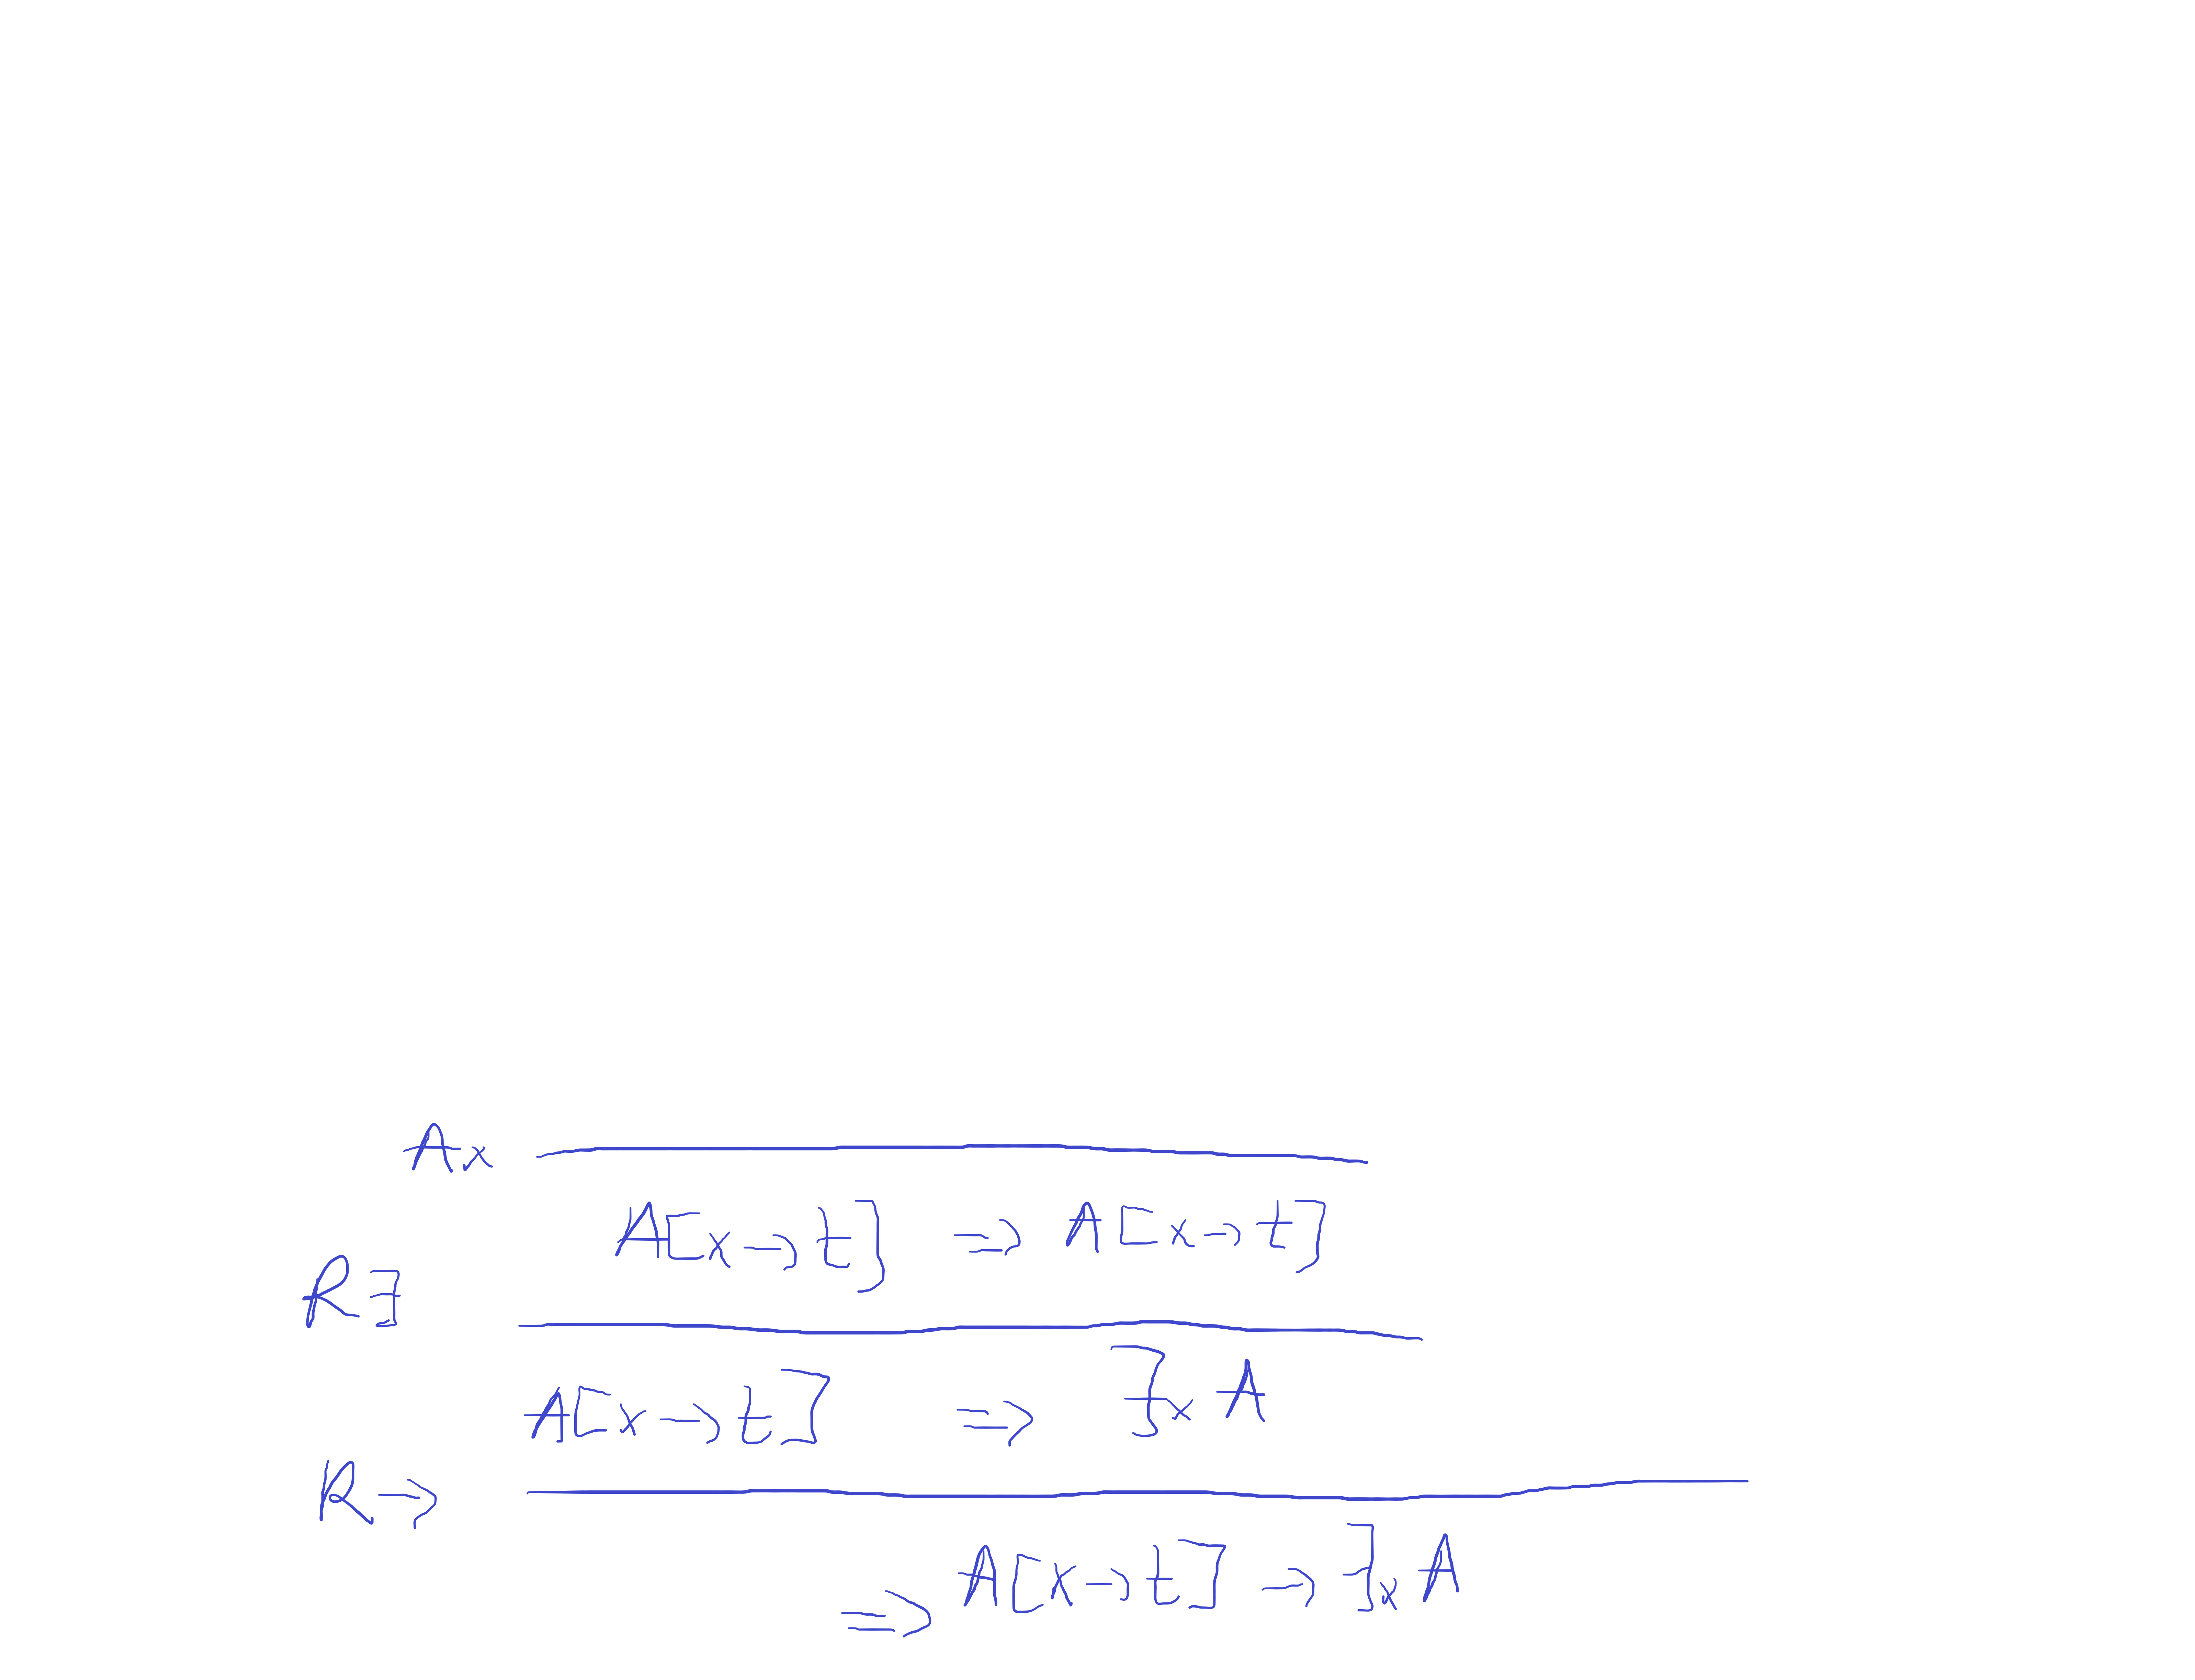 Ax
A[x→t] ⇒ A[x→t]
R∃
A[x→t] ⇒ ∃x A
R→
⇒ A[x→t] → ∃x A